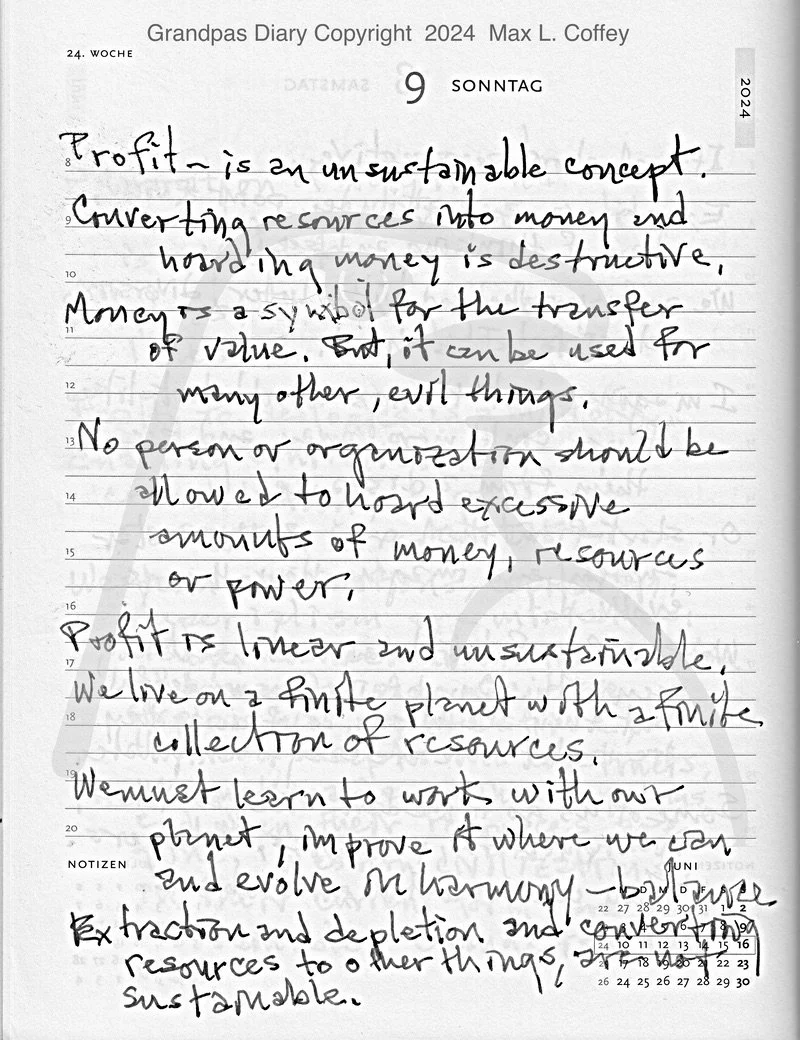 Grandpas Diary Copyright 2024 Max L. Coffey
24. WOCHE
9 SONNTAG
2024
8 Profit – is an unsustainable concept.
9 Converting resources into money and
hoarding money is destructive.
10
Money is a symbol for the transfer
11 of value. But, it can be used for
12 many other, evil things.
13 No person or organization should be
14 allowed to hoard excessive
amounts of money, resources
15 or power.
16
Profit is linear and unsustainable.
17 We live on a finite planet with a finite
18 collection of resources.
19 We must learn to work with our
20 planet, improve it where we can
NOTIZEN
JUNI
and evolve in harmony – balance
Extraction and depletion and converting
resources to other things, are not
sustainable.
M D M D F S S
22 27 28 29 30 31 1 2
23 3 4 5 6 7 8 9
24 10 11 12 13 14 15 16
25 17 18 19 20 21 22 23
26 24 25 26 27 28 29 30